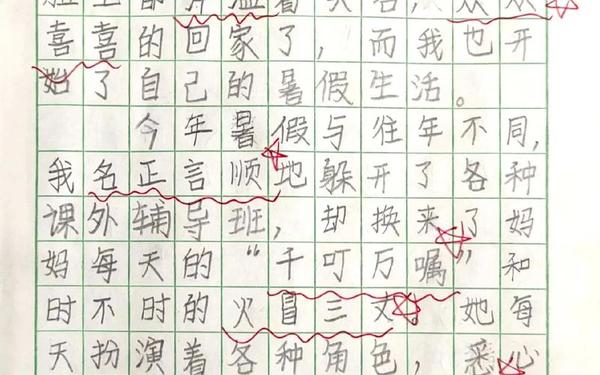 脸上都洋溢着笑容，欢欢
喜喜的回家了，而我也开
始了自己的暑假生活。
今年暑假与往年不同，
我名正言顺地躲开了各种
课外辅导班，却换来了妈
妈每天的“千叮万嘱”和
时不时的火冒三丈。她每
天扮演着各种角色，悉心